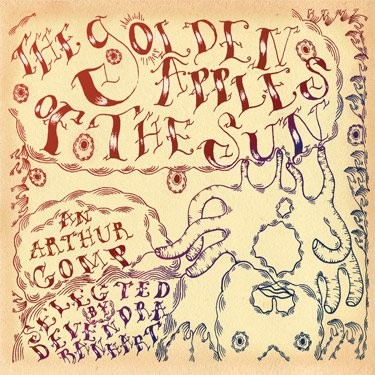 THE GOLDEN
APPLES
OF THE SUN
AN
ARTHUR
COMP
SELECTED
BY
DEVENDRA
BANHART